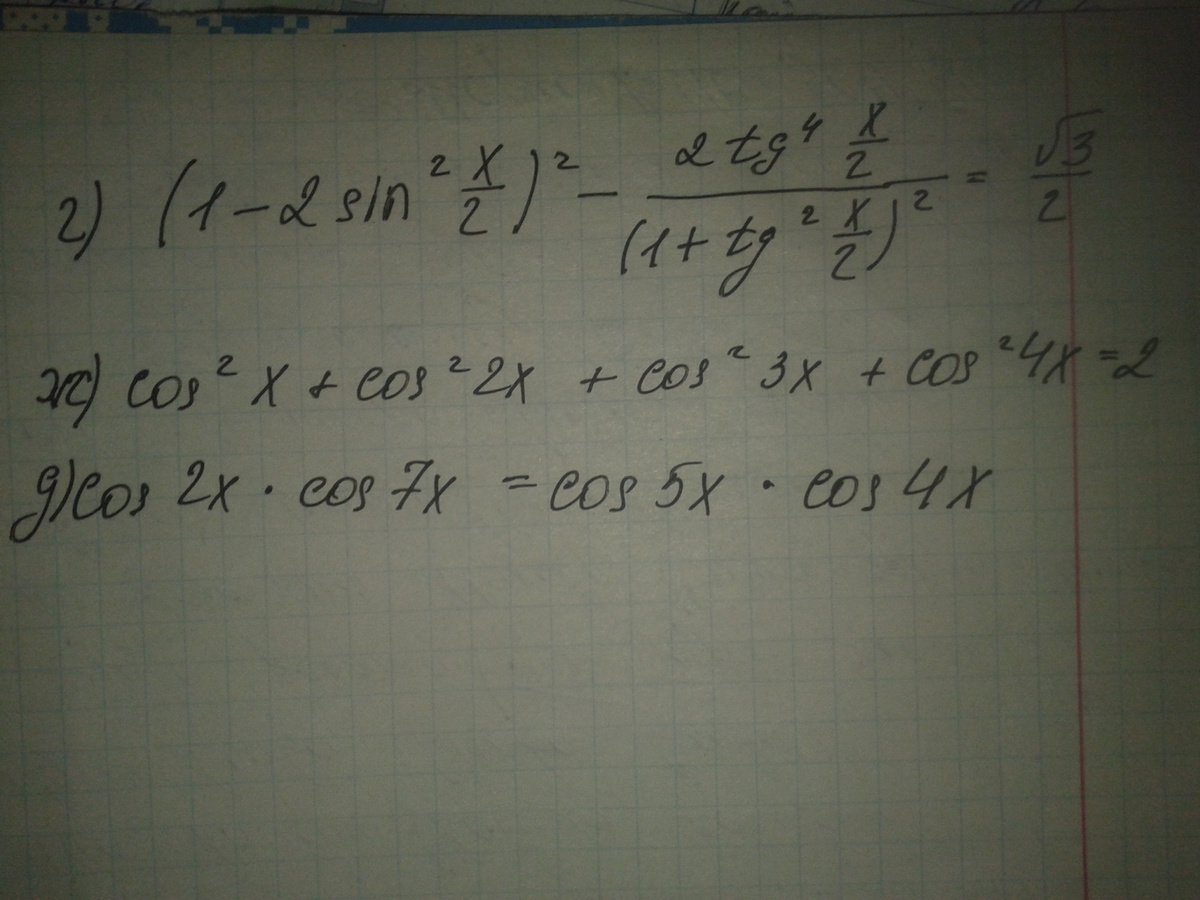 г) (1 - 2 sin² x/2)² - (2 tg⁴ x/2)/(1 + tg² x/2)² = √3/2
ж) cos² x + cos² 2x + cos² 3x + cos² 4x = 2
д) cos 2x · cos 7x = cos 5x · cos 4x